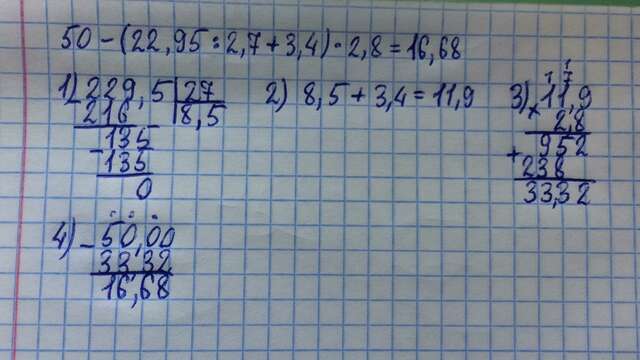 50 - (22,95 : 2,7 + 3,4) · 2,8 = 16,68
1) 229,5 | 27
216 | 8,5
- 135
135
0
2) 8,5 + 3,4 = 11,9
1
1 7
3) 11,9
× 2,8
952
+ 238
33,32
4) - 50,00
33,32
16,68